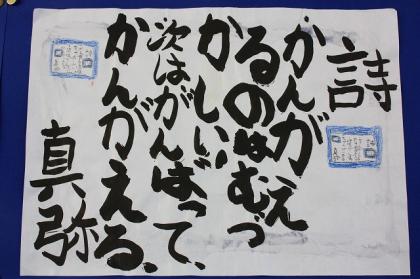 詩
かんがえ
るのはむづ
かしい!
次はがんばって、
かんがえる、
真弥